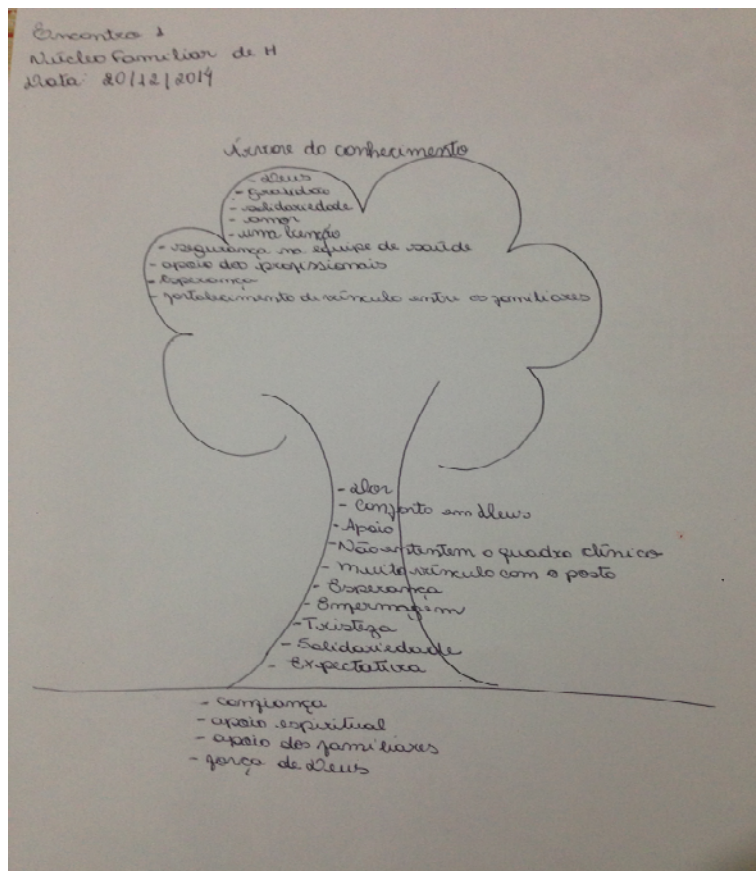 Encontro 1
Núcleo Familiar de H
Data: 20/12/2014
Árvore do conhecimento
- Deus
- gratidão
- solidariedade
- amor
- uma benção
- segurança na equipe de saúde
- apoio dos profissionais
- Esperança
- fortalecimento de vínculo entre os familiares
- Dor
- Conforto em Deus
- Apoio
- Não ententem o quadro clínico
- muito vínculo com o posto
- Esperança
- Enfermagem
- Tristeza
- Solidariedade
- Expectativa
- confiança
- apoio espiritual
- apoio dos familiares
- força de Deus